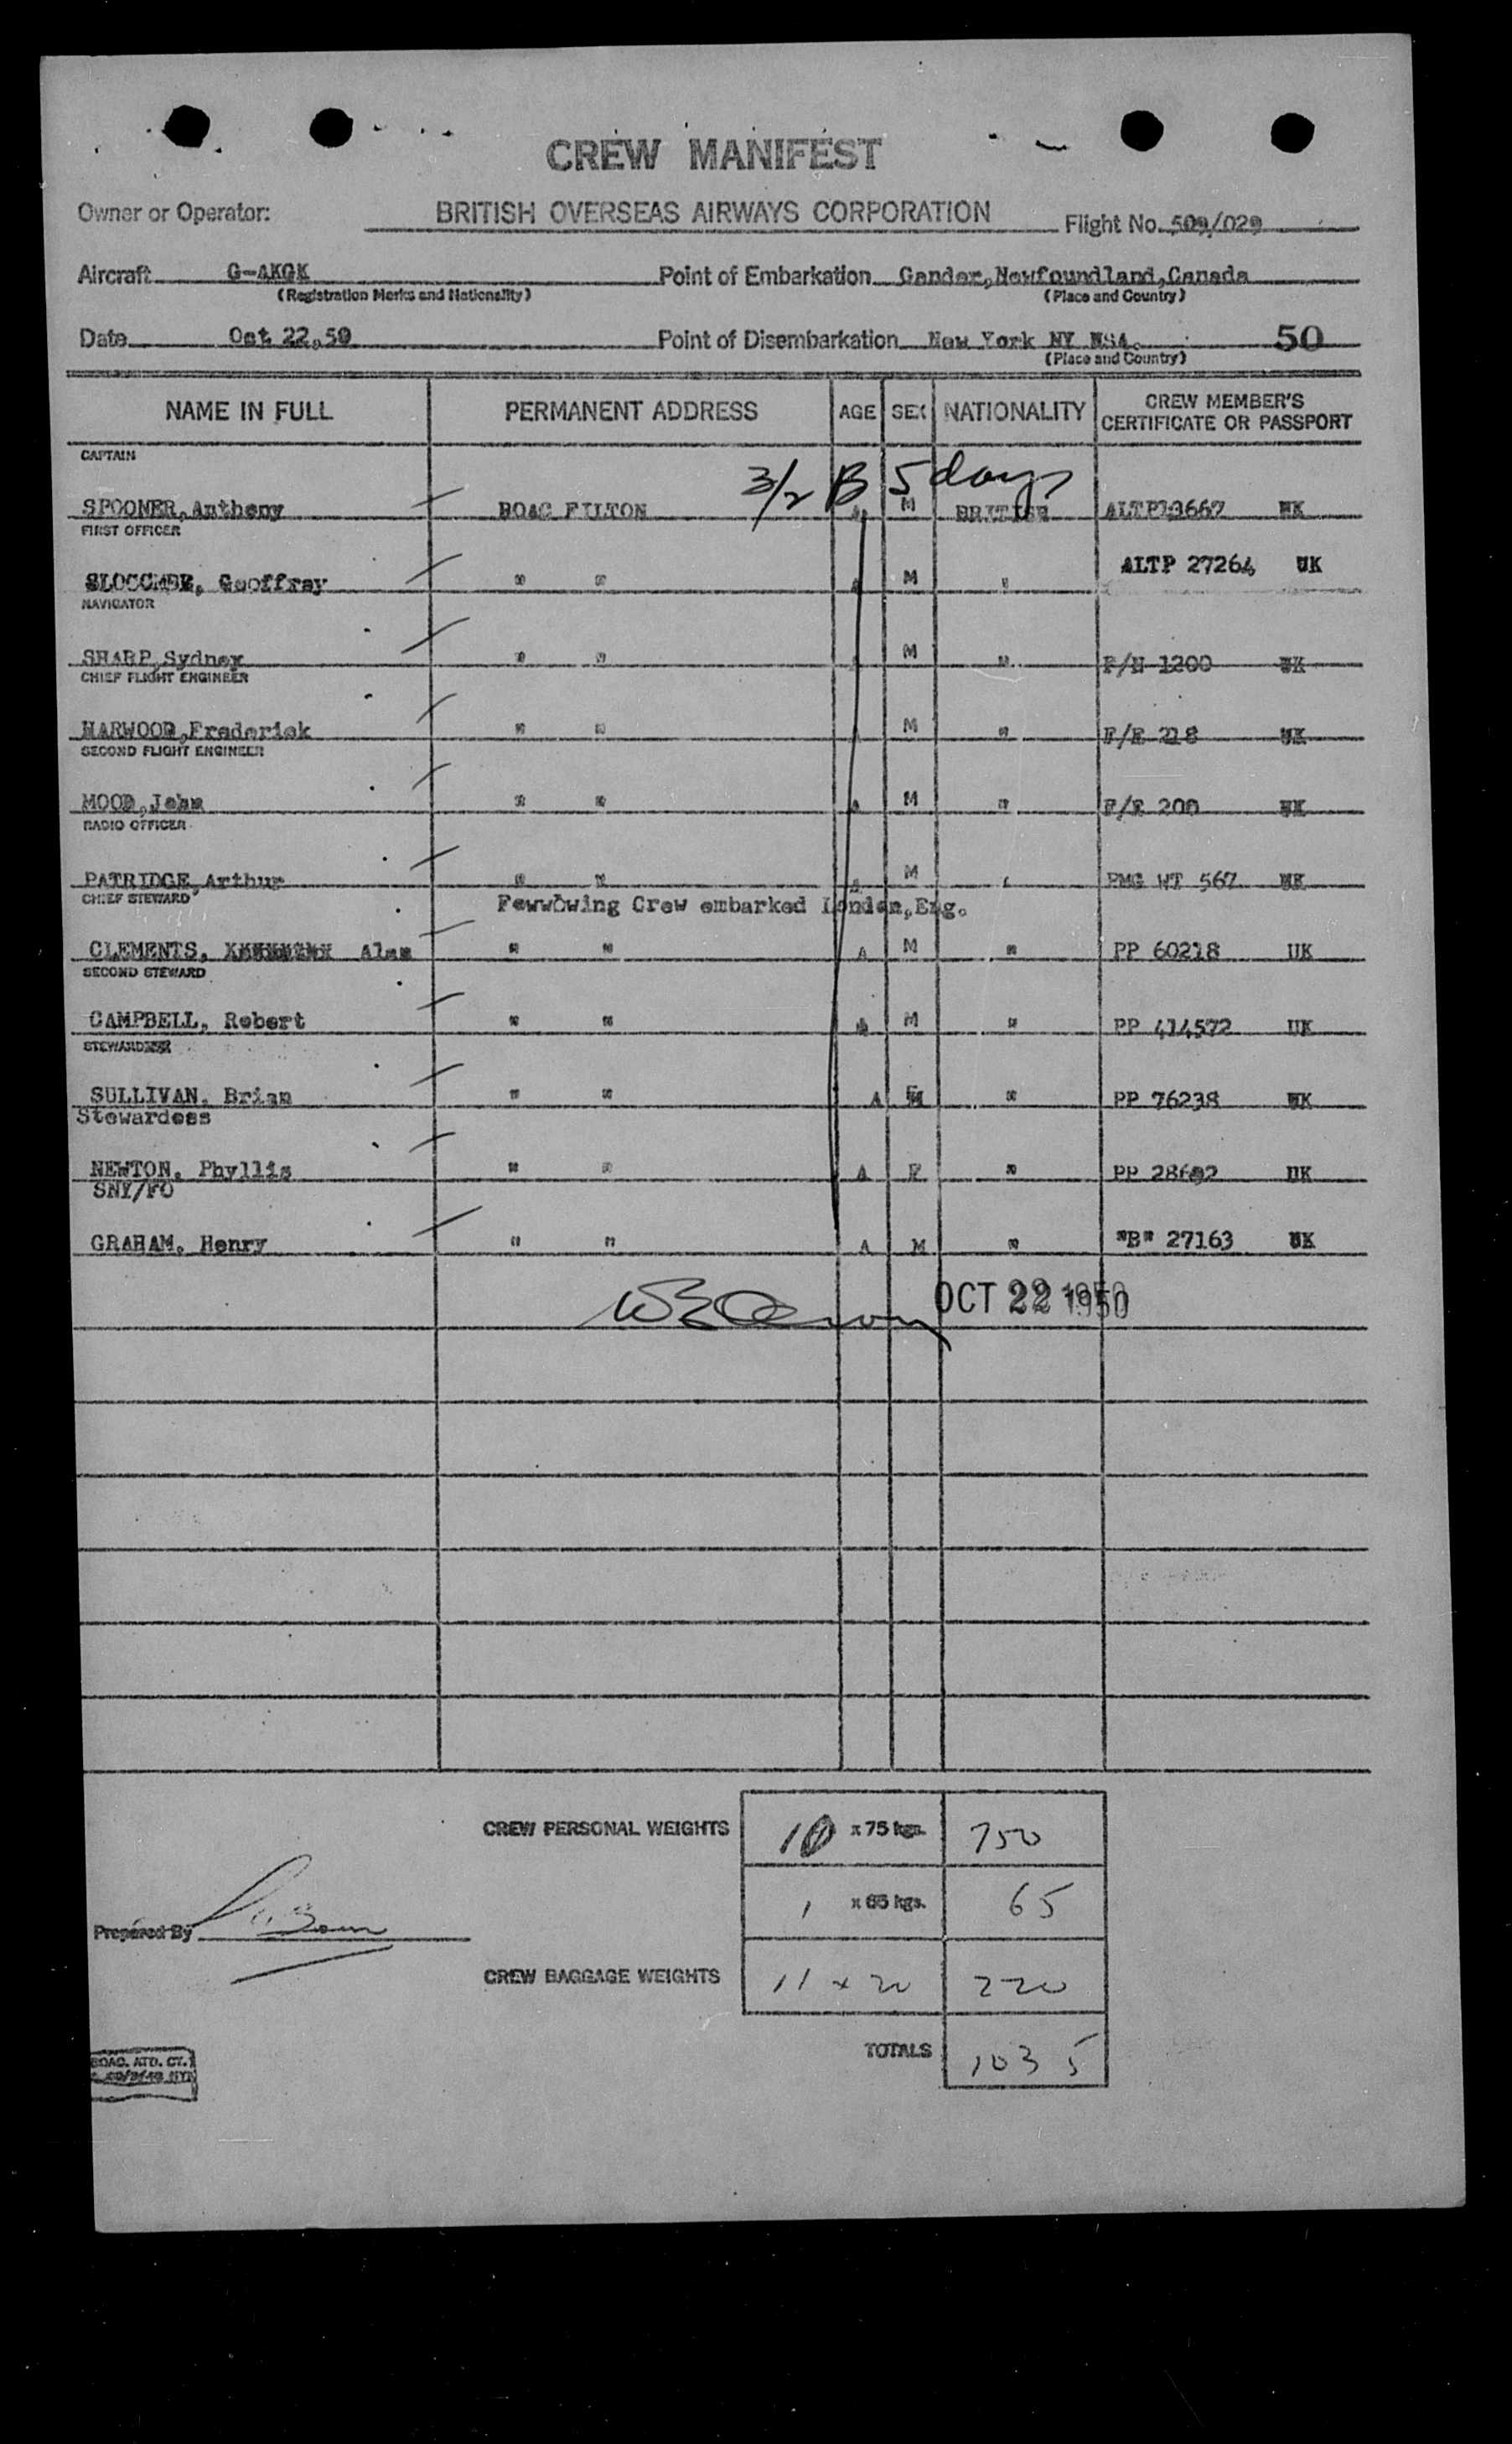 CREW MANIFEST
Owner or Operator: BRITISH OVERSEAS AIRWAYS CORPORATION Flight No. 509/029
Aircraft G-AKGK Point of Embarkation Gander,Newfoundland,Canada
(Registration Marks and Nationality) (Place and Country)
Date Oct 22,50 Point of Disembarkation New York NY USA. 50
(Place and Country)
NAME IN FULL PERMANENT ADDRESS AGE SEX NATIONALITY CREW MEMBER'S CERTIFICATE OR PASSPORT
CAPTAIN
3/2 B 5 days
SPOONER,Anthony BOAC FILTON A M BRITISH ALTP13667 UK
FIRST OFFICER
SLOCOMBE, Geoffray " " A M " ALTP 27264 UK
NAVIGATOR
SHARP,Sydney " " A M " F/N 1200 UK
CHIEF FLIGHT ENGINEER
HARWOOD,Frederick " " M " F/E 218 UK
SECOND FLIGHT ENGINEER
MOOD,John " " A M " F/E 200 UK
RADIO OFFICER
PATRIDGE,Arthur " " A M " PMG WT 567 UK
CHIEF STEWARD
Fewwbwing Crew embarked London,Eng.
CLEMENTS, Alan " " A M " PP 60218 UK
SECOND STEWARD
CAMPBELL, Robert " " A M " PP 414572 UK
STEWARD
SULLIVAN, Brian " " A M " PP 76238 UK
Stewardess
NEWTON, Phyllis " " A F " PP 28692 UK
SNY/FO
GRAHAM, Henry " " A M " "B" 27163 UK
OCT 22 1950
CREW PERSONAL WEIGHTS 10 x 75 kgs. 750
1 x 65 kgs. 65
Prepared By
CREW BAGGAGE WEIGHTS 11 x 20 220
TOTALS 1035
BOAC. ATD. CT.